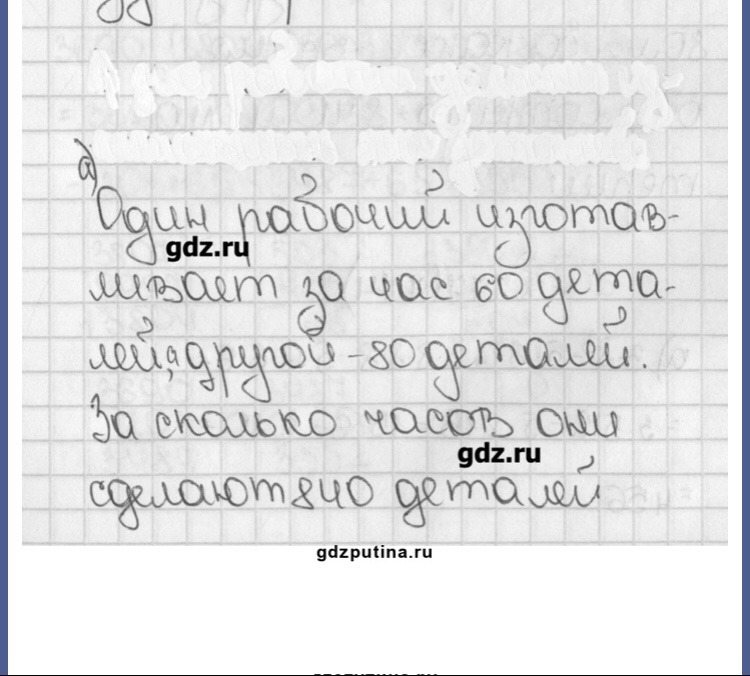 а)
Один рабочий изготав-
gdz.ru
ливает за час 60 дета-
лей, а другой - 80 деталей.
За сколько часов они
gdz.ru
сделают 840 деталей
gdzputina.ru